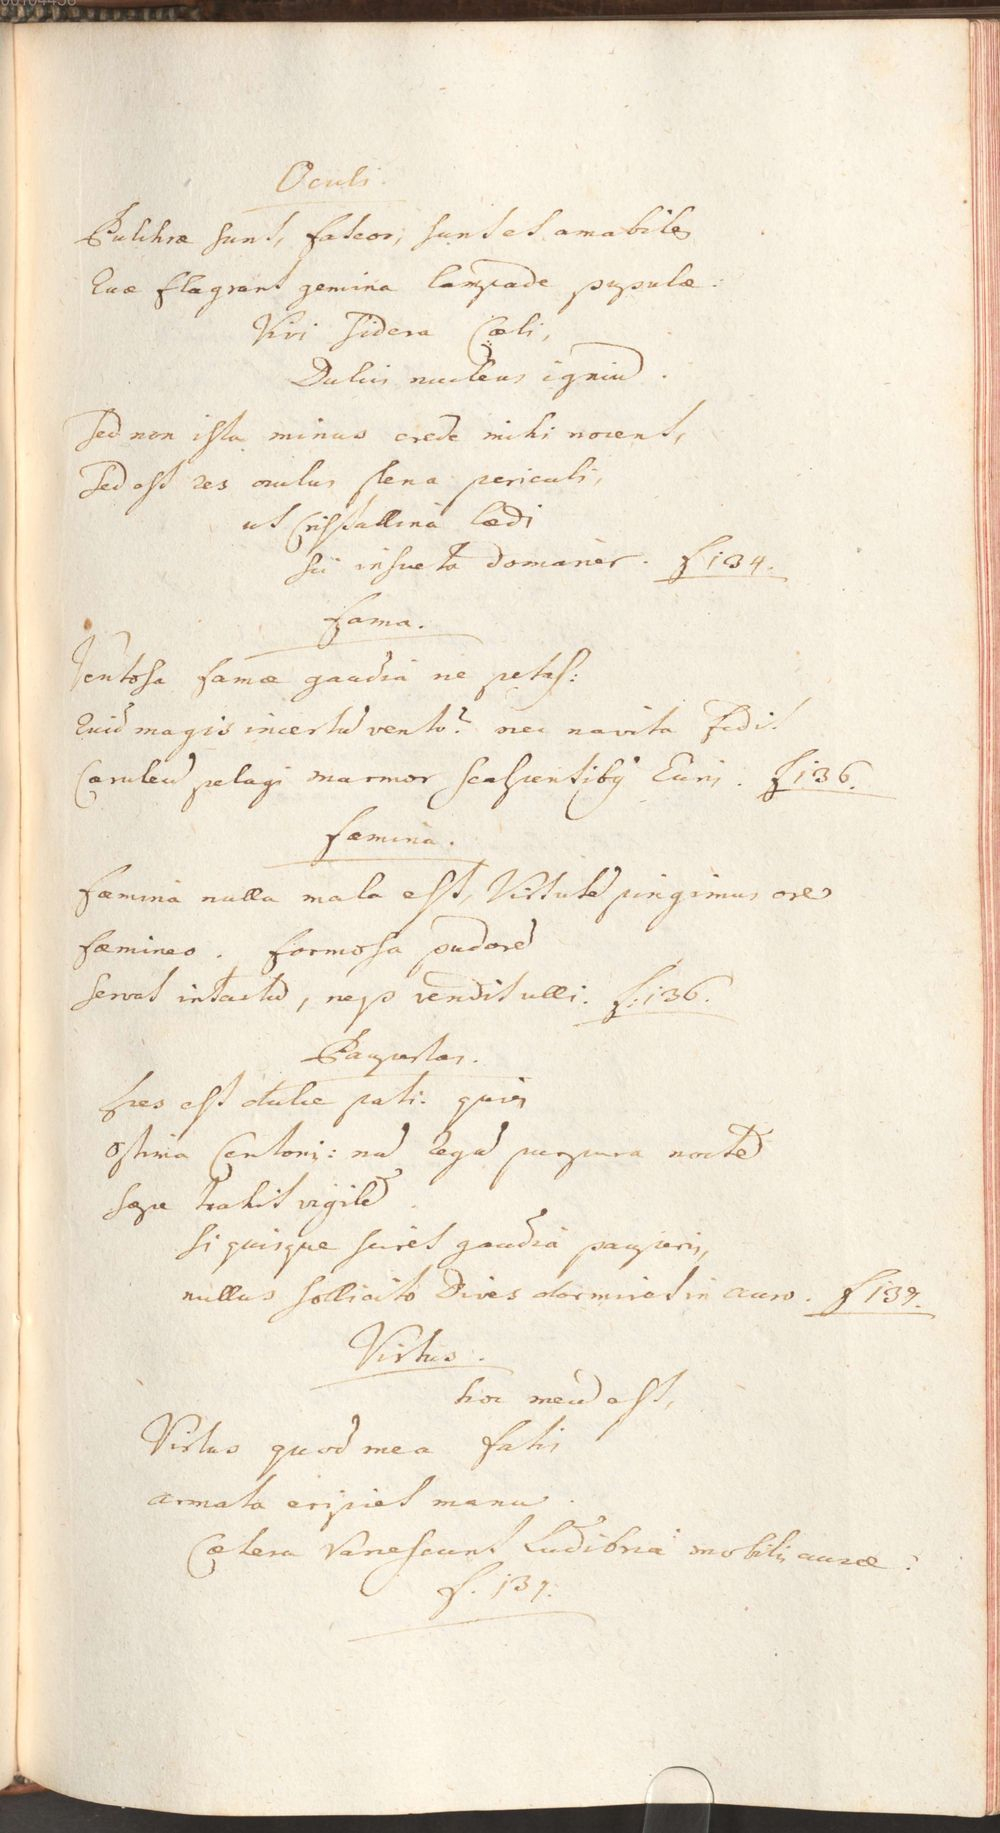 Oculi.
Pulchræ sunt, fateor, sunt et amabiles
Quæ flagrant gemina lampade pupulæ:
Vivi sidera Cœli,
Dulcis nucleus igniū.
Sed non ista minus crede mihi nocent,
Sed est res oculus plena periculi,
ut Cristallina lædi
insueta f 134.
Fama.
Ventosa famæ gaudia ne petas:
Quid magis incertū vento? nec navita fidit
Cæruleū pelagi marmor scalpentibꝰ Euris. f 136.
Fœmina.
Fœmina nulla mala est, Virtutē pingimus ore
Fœmineo. Formosa pudorē
servat intactū, neqꝫ vendit ulli. f. 136.
Paupertas.
spes est dulce pati: quies
ostina Centonis: nā regū purpura noctē
sæpe trahit vigilē.
Si quisque sciret gaudia pauperis,
nullus sollicito Dives dormiret in auro. f 137.
Virtus.
hoc meū est,
Virtus quod mea fatis
armata eripiet manu.
Cætera vanescunt Ludibria mobilis auræ.
f. 137.